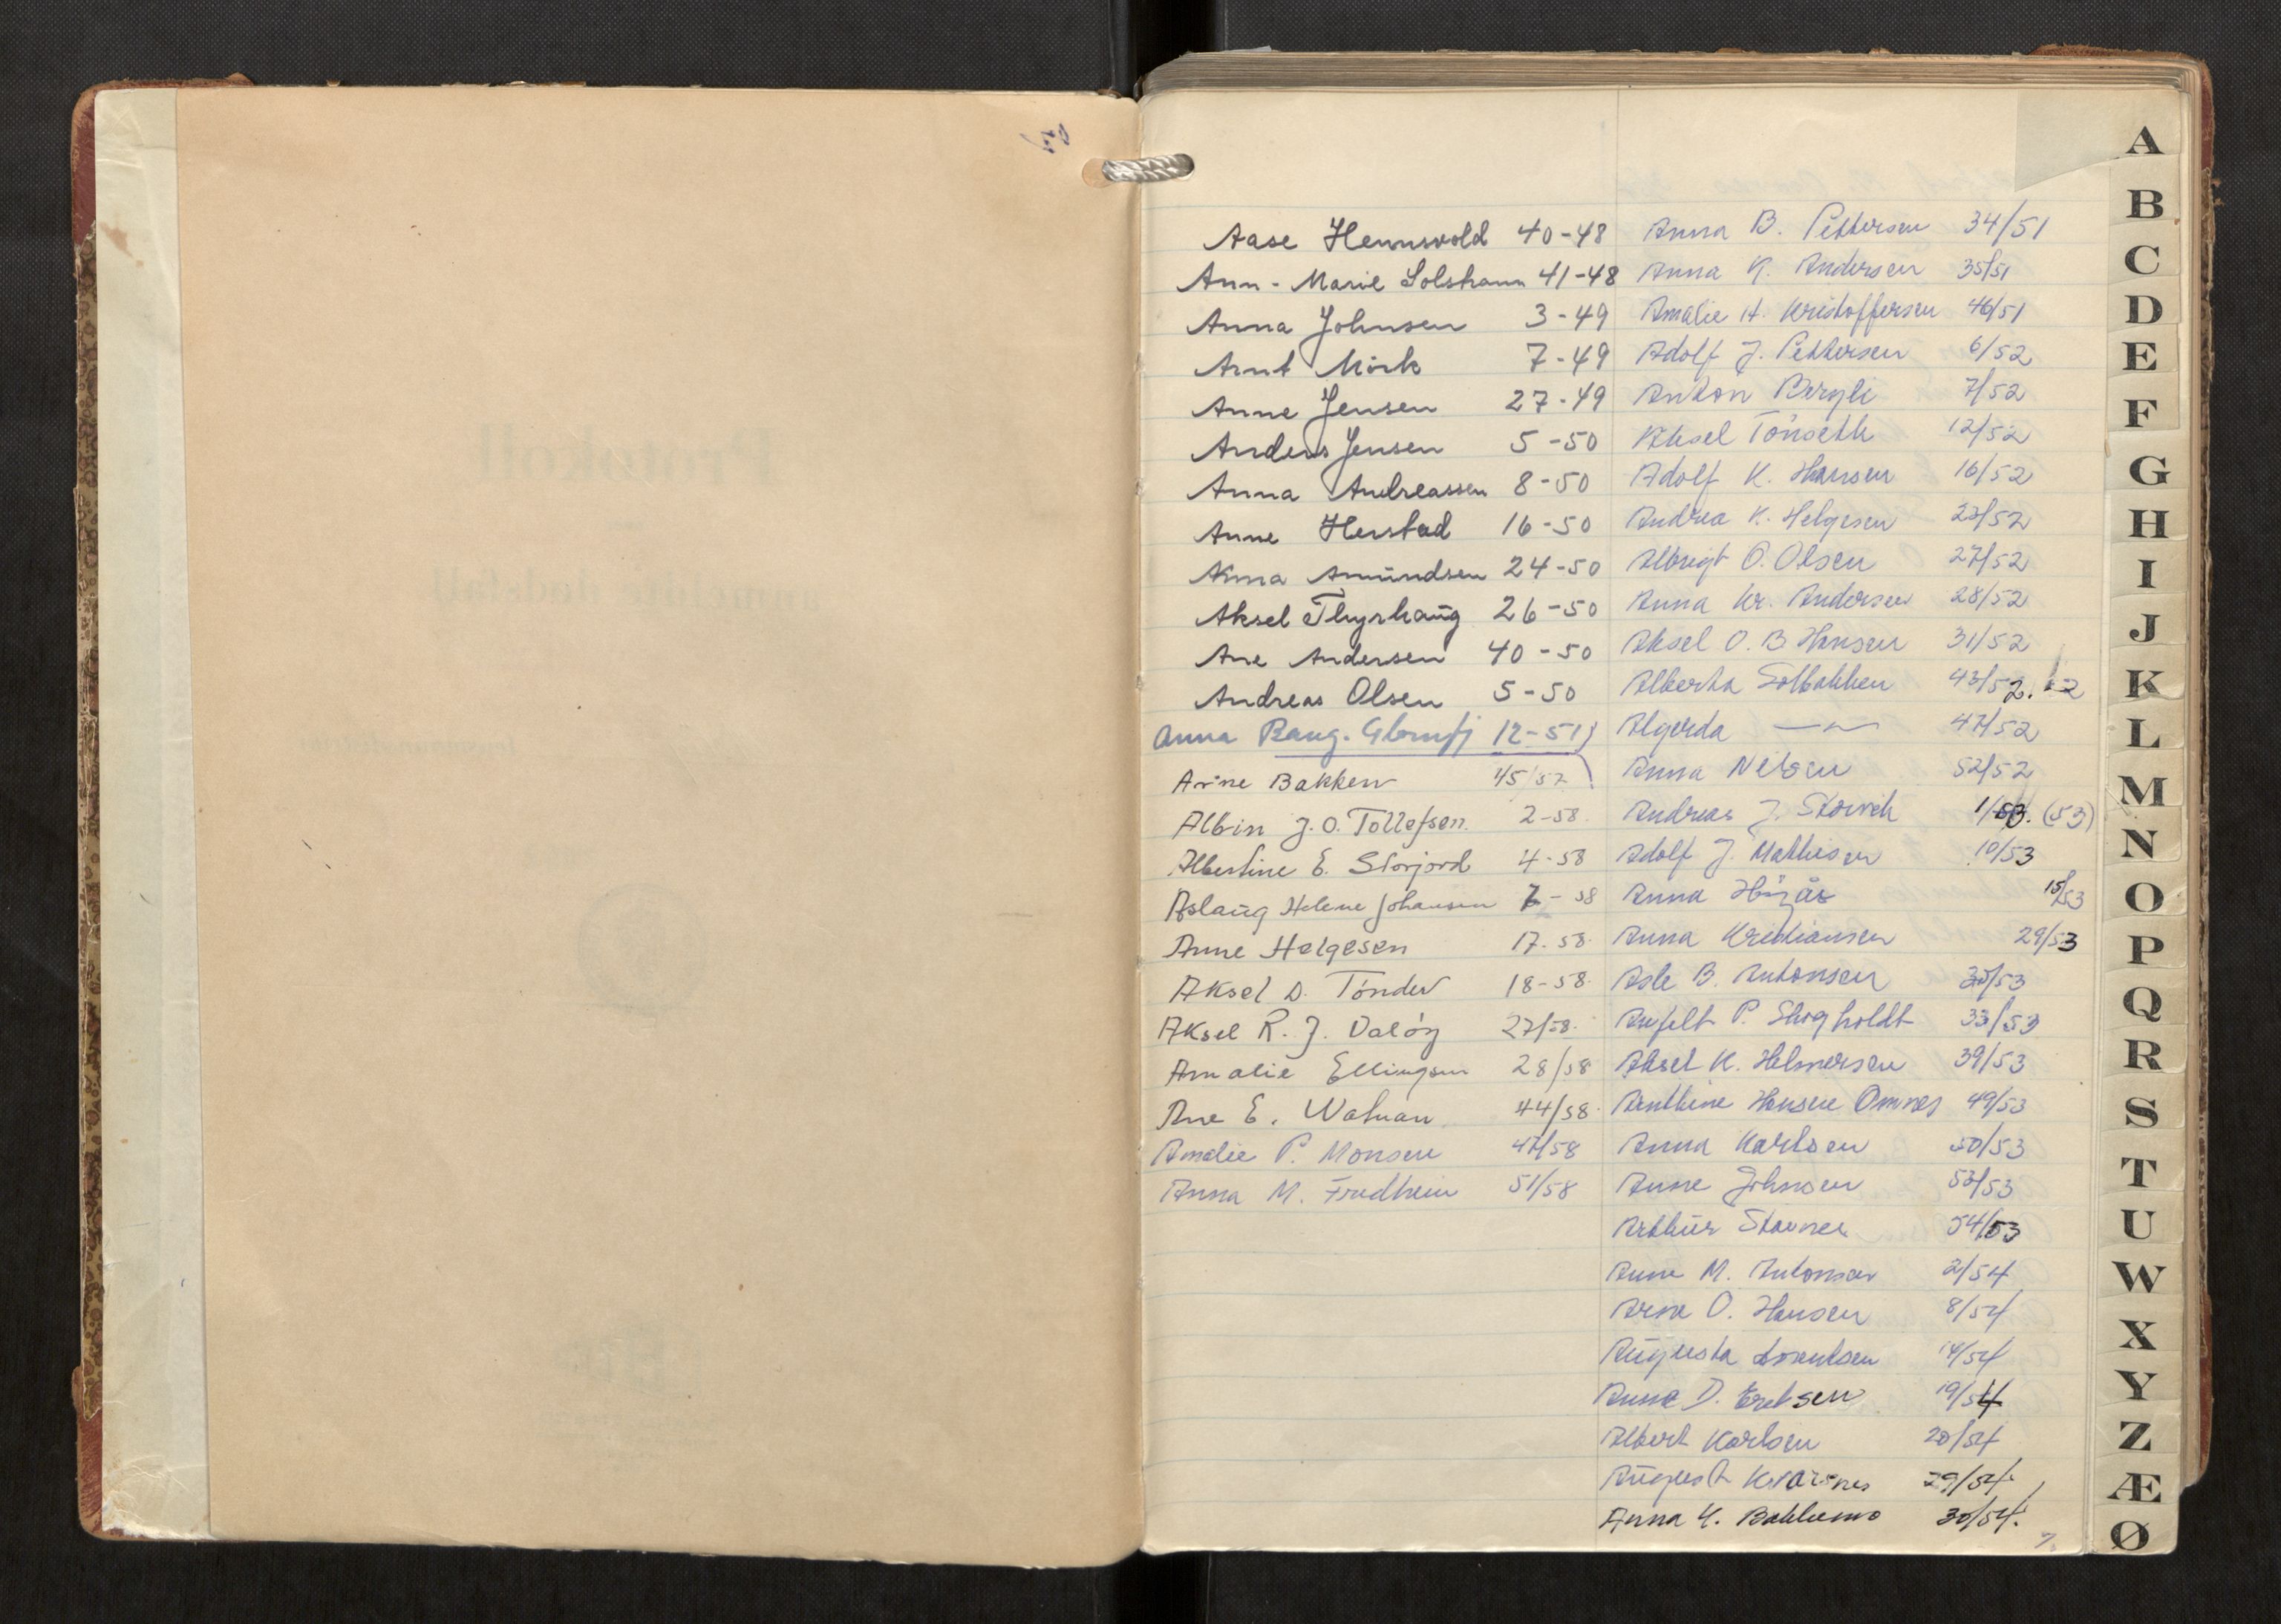 Aase Hemnsvold 40-48
Ann-Marie Solsham 41-48
Anna Johnsen 3-49
Arnt Mörk 7-49
Anne Jensen 27-49
Anders Jensen 5-50
Anna Andreassen 8-50
Anne Herstad 16-50
Anna Amundsen 24-50
Aksel Thyrhaug 26-50
Ane Andersen 40-50
Andreas Olsen 5-50
Anna Bang. Glomfj 12-51
Arne Bakken 45/57
Albin J. O. Tollefsen. 2-58.
Albertine E. Storjord 4-58
Aslaug Helene Johansen 7-58
Anne Helgesen 17-58.
Aksel D. Tönder 18-58.
Aksel R. J. Valöy 27/58.
Amalie Ellingsen 28/58
Ane E. 44/58.
Amalie P. Monsen 47/58
Anna M. Fredheim 51/58
Anna B. Pettersen 34/51
Anna K. Andersen 35/51
Amalie H. Kristoffersen 46/51
Adolf J. Pettersen 6/52
Anton Bergli 7/52
Aksel Tönseth 12/52
Adolf K. Hansen 16/52
Andrea K. Helgesen 23/52
Albrigt O. Olsen 27/52
Anna Kr. Andersen 28/52
Aksel O. B. Hansen 31/52
Alberta Solbakken 43/52.
Algerda —"— 47/52
Anna Nilsen 52/52
Andreas J. Storvik 1/53. (53)
Adolf J. Mathisen 10/53
Anna Höyås 15/53
Anna Kristiansen 29/53
Asle B. Antonsen 30/53
Anfelt P. Skogholdt 33/53
Aksel K. Helmersen 39/53
Anthine Hansen Omnes 49/53
Anna Karlsen 50/53
Anne Johnsen 53/53
Arthur Stavnes 54/53
Anne M. Antonsen 2/54
Arne O. Hansen 8/54
Augusta Lorentsen 14/54
Anna D. Eriksen 19/54
Albert Karlsen 20/54
August Kvarsnes 29/54.
Anna K. Bakkemo 30/54.
A
B
C
D
E
F
G
H
I
J
K
L
M
N
O
P
Q
R
S
T
U
W
X
Y
Z
Æ
Ø